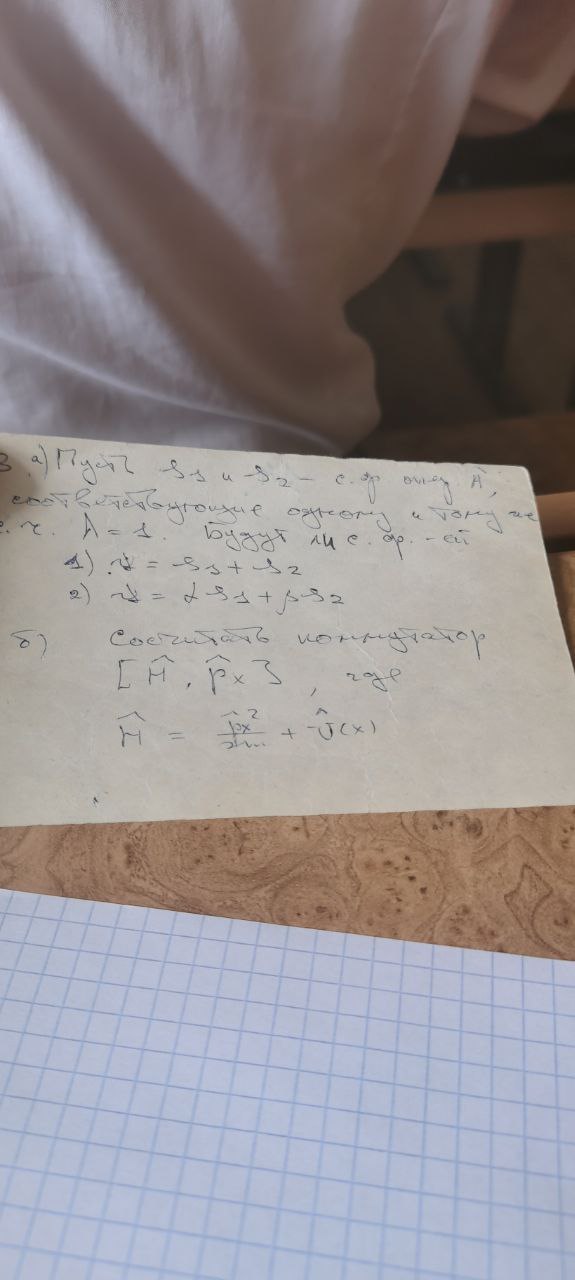 3 а) Пусть ψ₁ и ψ₂ – с.ф. опер. Â,
соответствующие одному и тому же
с.ч. A = 1. Будут ли с.ф.-ей
1) ψ = ψ₁ + ψ₂
2) ψ = αψ₁ + βψ₂
б) Сосчитать коммутатор
[Ĥ, p̂ₓ], где
Ĥ = p̂ₓ²/2m + Û(x)